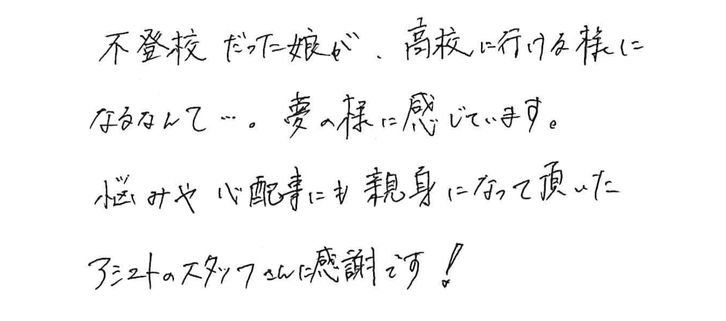 不登校だった娘が、高校に行ける様に
なるなんて…。夢の様に感じています。
悩みや心配事にも親身になって頂いた
アシストのスタッフさんに感謝です!